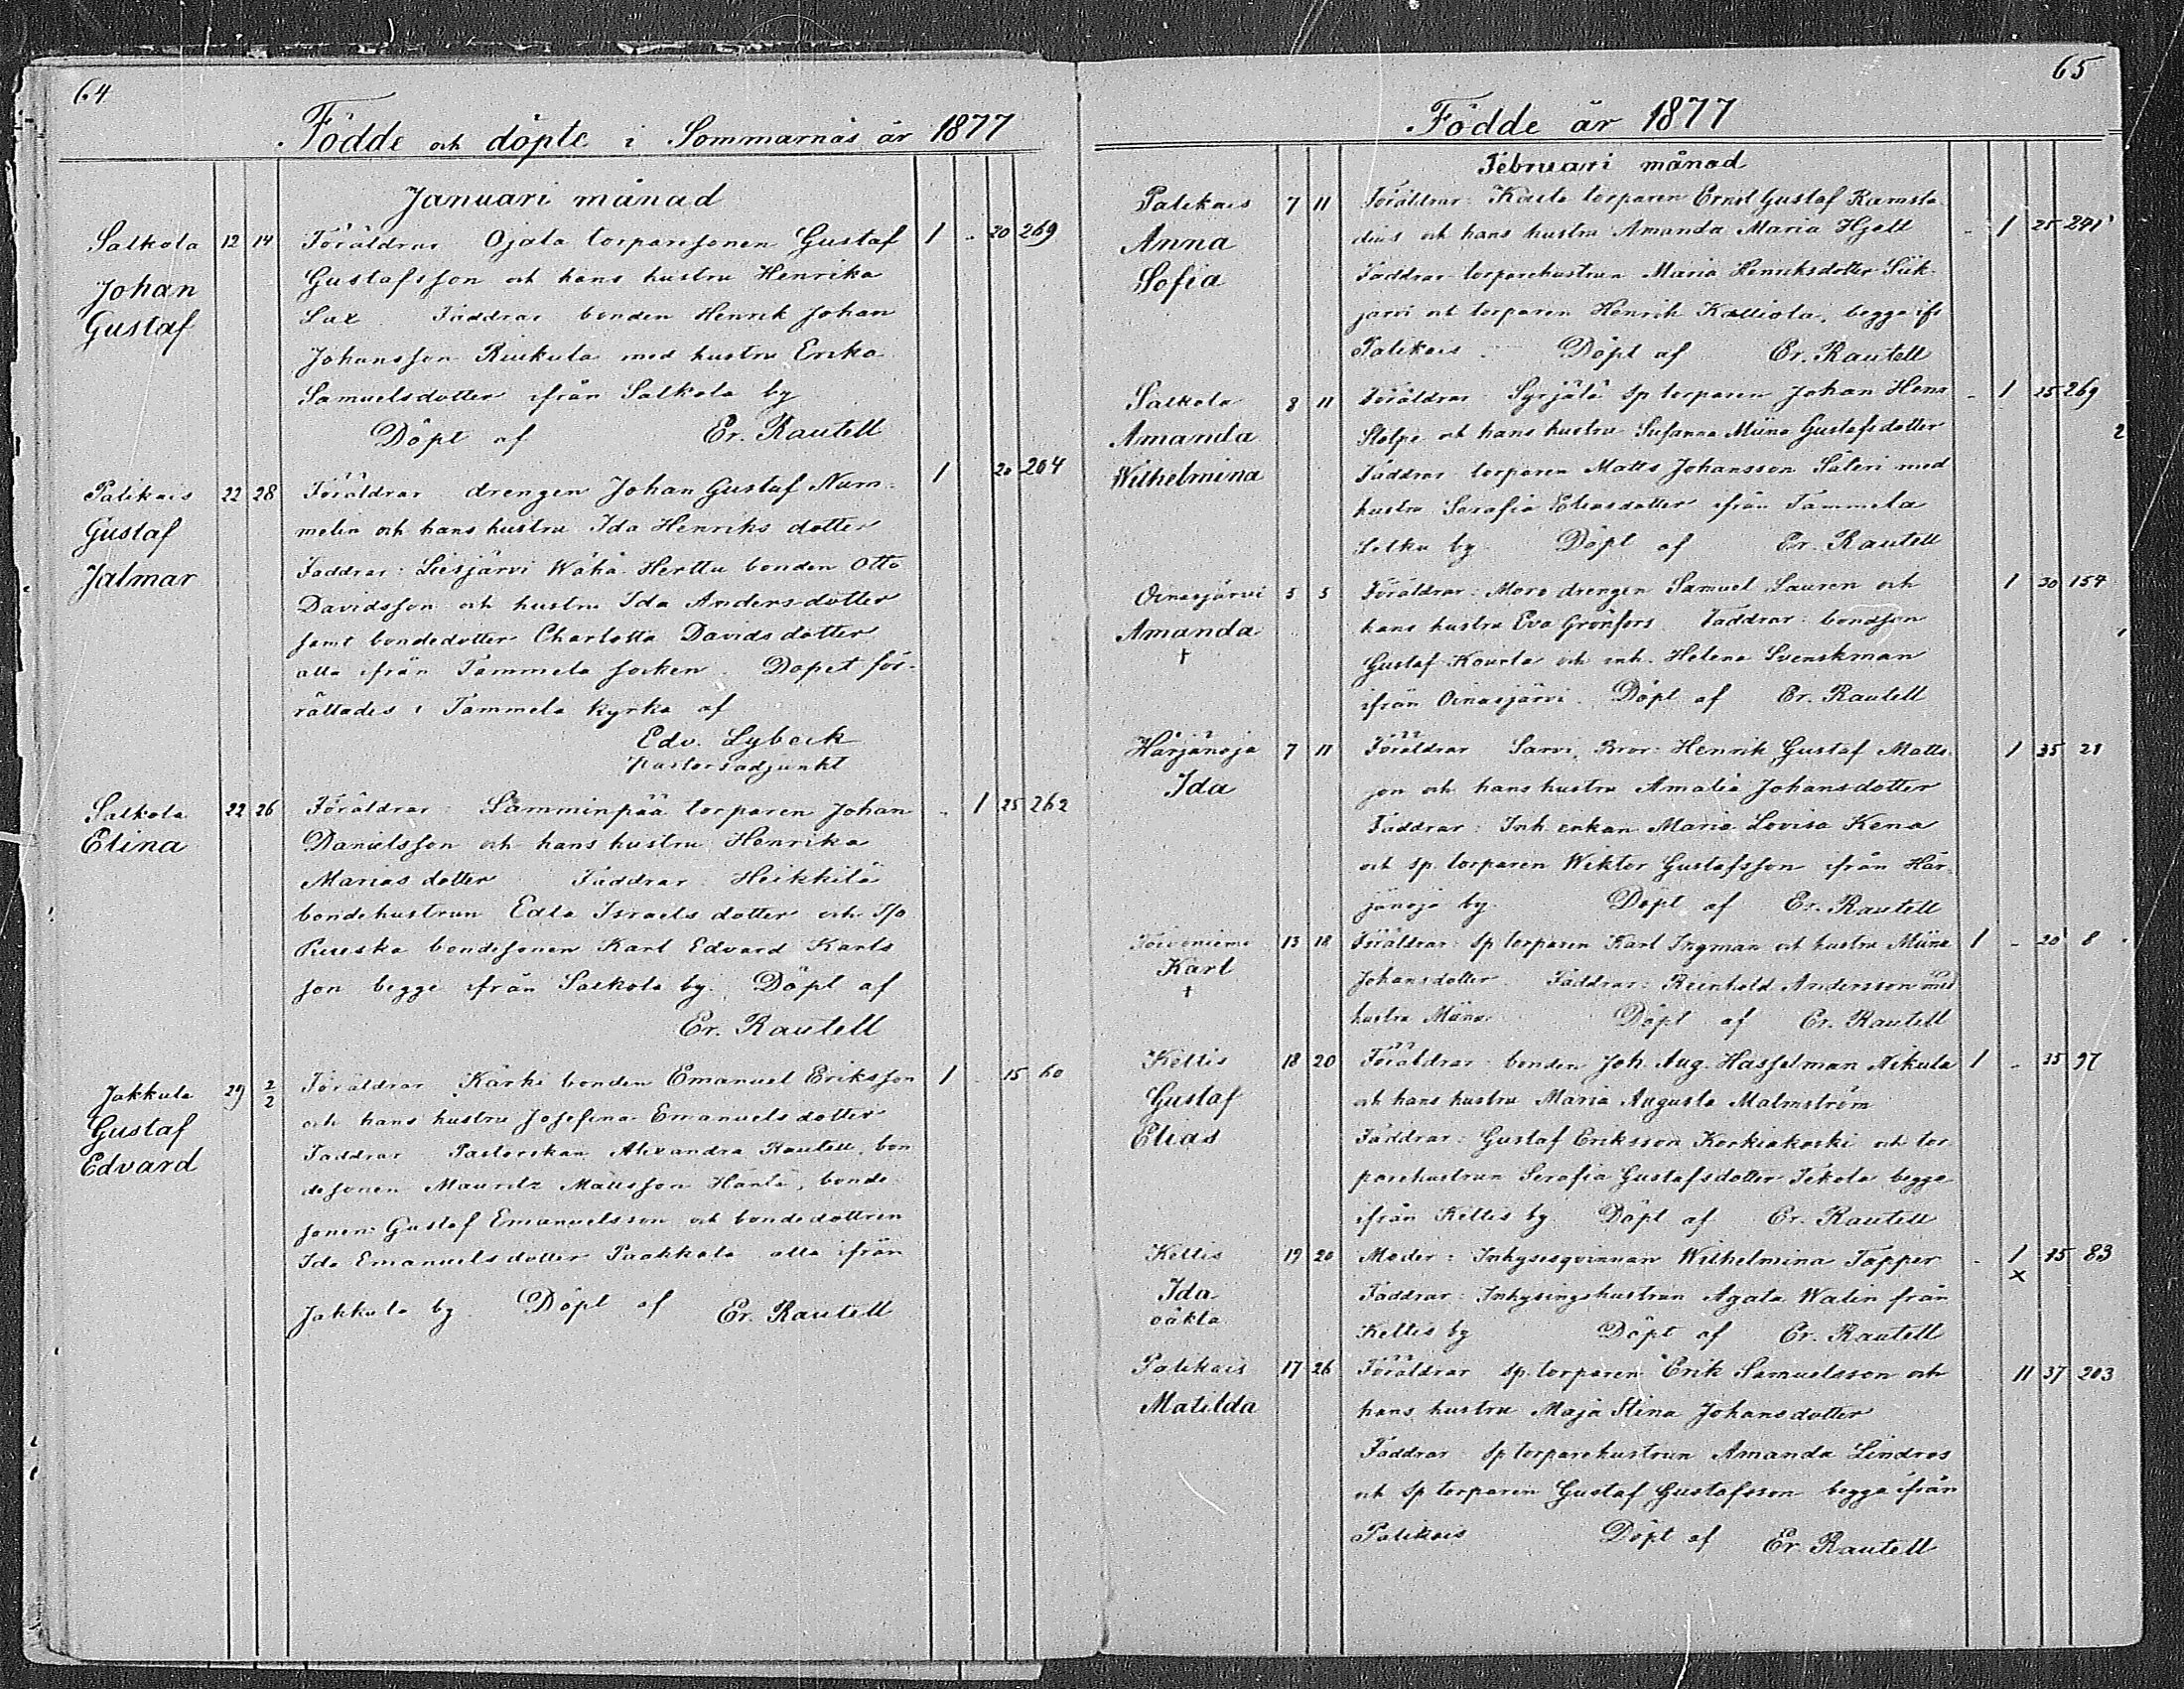 64
Födde och döpte i Sommarnäs år 1877
Januari månad
Salkola 12 14 Föräldrar Ojala torparesonen Gustaf 1 - 20 269
Johan Gustafsson och hans hustru Henrika
Gustaf Sax Faddrar bonden Henrik Johan
Johansson Riukula med hustru Erika
Samuelsdotter ifrån Salkola by
Döpt af Er. Rautell
Palikais 22 28 Föräldrar drengen Johan Gustaf Num- 1 20 204
Gustaf melin och hans hustru Ida Henriks dotter
Jalmar Faddrar: Liesjärvi Wähä Herttu bonden Otto
Davidsson och hustru Ida Andersdotter
samt bondedotter Charlotta Davidsdotter
alla ifrån Tammela socken. Dopet för-
rättades i Tammela kyrka af
Edv. Lybeck
pastorsadjunkt
Salkola 22 26 Föräldrar: Samminpää torparen Johan - 1 25 262
Elina Danielsson och hans hustru Henrika
Mariasdotter Faddrar: Heikkilä
bondehustrun Edla Israels dotter och
bondesonen Karl Edvard Karls
son begge ifrån Salkola by. Döpt af
Er. Rautell
Jakkula 29 2/2 Föräldrar Kärki bonden Emanuel Eriksson 1 15 60
Gustaf och hans hustru Josefina Emanuels dotter
Edvard Faddrar Pastorskan Alexandra Rautell, bon
desonen Mauritz Mattsson Häntä, bonde
sonen Gustaf Emanuelsson och bondedottren
Ida Emanuels dotter Paakkola alla ifrån
Jakkula by. Döpt af Er. Rautell
65
Födde år 1877
Februari månad
Palikais 7 11 Föräldrar: Kouta torparen Ernst Gustaf Ramste
Anna dius och hans hustru Amanda Maria Hjelt - 1 25 241
Sofia Faddrar torparehustrun Maria Henriksdotter Siik-
järvi och torparen Henrik Kalliola, begge ifr
Palikais. Döpt af Er. Rautell
Salkola 8 11 Föräldrar Syrjälä sp torparen Johan Henr - 1 25 269
Amanda Stolpe och hans hustru Susanna Miina Gustafsdotter
Wilhelmina Faddrar torparen Matts Johansson Säteri med
hustru Serafia Eliasdotter ifrån Tammela
Letku by Döpt af Er. Rautell
Oinasjärvi 5 5 Föräldrar: Moro drengen Samuel Lauren och 1 30 154
Amanda hans hustru Eva Grönfors Faddrar: bondson
† Gustaf Kourla och inh. Helena Svenskman
ifrån Oinasjärvi. Döpt af Er. Rautell
Härjänoja 7 11 Föräldrar Sarvi, Bror: Henrik Gustaf Matts 1 35 21
Ida son och hans hustru Amalia Johansdotter
Faddrar: Inh enkan Maria Lovisa Kena
och sp. torparen Wiktor Gustafsson ifrån Här-
jänoja by. Döpt af Er. Rautell
Toivoniemi 13 18 Föräldrar: Sp torparen Karl Ingman och hustru Miina 1 - 20 8
Karl Johansdotter. Faddrar: Reinhold Andersson med
† hustru Miina. Döpt af Er. Rautell
Keltis 18 20 Föräldrar: bonden Joh. Aug. Hasselman Nikula 1 - 35 97
Gustaf och hans hustru Maria Augusta Malmström
Elias Faddrar: Gustaf Eriksson Korkiakoski och tor
parehustrun Serafia Gustafsdotter Iekola begge
ifrån Keltis by. Döpt af Er. Rautell
Keltis 19 20 Moder: Inhysesqvinnan Wilhelmina Tapper - 1 35 83
Ida Faddrar: Inhysingehustrun Agata Walin från ×
oäkta Keltis by Döpt af Er. Rautell
Palikais 17 26 Föräldrar sp. torparen Erik Samuelsson och 11 37 203
Matilda hans hustru Maja Stina Johansdotter
Faddrar: sp torparehustrun Amanda Lindros
och sp torparen Gustaf Gustafsson begge ifrån
Palikais Döpt af Er. Rautell